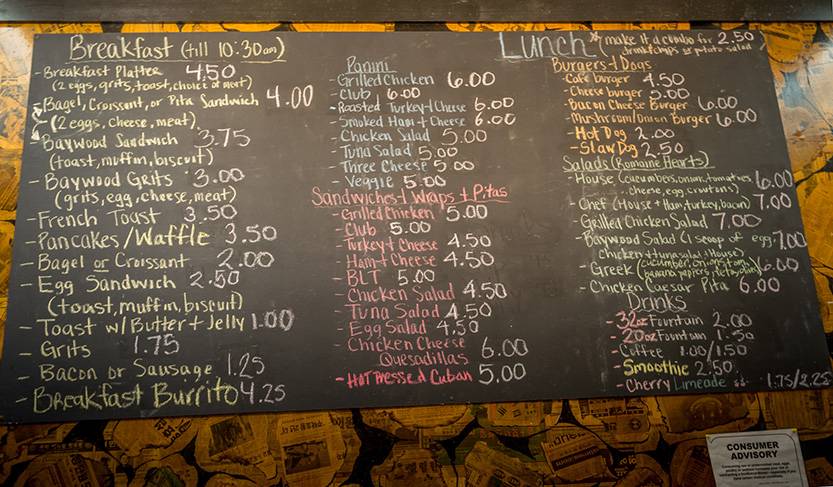 Breakfast (till 10:30am)
- Breakfast Platter 4.50
(2 eggs, grits, toast, choice of meat)
- Bagel, Croissant, or Pita Sandwich 4.00
(2 eggs, cheese, meat)
- Baywood Sandwich 3.75
(toast, muffin, biscuit)
- Baywood Grits 3.00
(grits, egg, cheese, meat)
- French Toast 3.50
- Pancakes/Waffle 3.50
- Bagel or Croissant 2.00
- Egg Sandwich 2.50
(toast, muffin, biscuit)
- Toast w/ Butter + Jelly 1.00
- Grits 1.75
- Bacon or Sausage 1.25
- Breakfast Burrito 4.25
Lunch
* make it a combo for 2.50
drink + chips or potato salad
Panini
- Grilled Chicken 6.00
- Club 6.00
- Roasted Turkey + Cheese 6.00
- Smoked Ham + Cheese 6.00
- Chicken Salad 5.00
- Tuna Salad 5.00
- Three Cheese 5.00
- Veggie 5.00
Sandwiches + Wraps + Pitas
- Grilled Chicken 5.00
- Club 5.00
- Turkey + Cheese 4.50
- Ham + Cheese 4.50
- BLT 5.00
- Chicken Salad 4.50
- Tuna Salad 4.50
- Egg Salad 4.50
- Chicken Cheese
Quesadillas 6.00
- Hot Pressed Cuban 5.00
Burgers + Dogs
- Café burger 4.50
- Cheese burger 5.00
- Bacon Cheese Burger 6.00
- Mushroom/Onion Burger 6.00
- Hot Dog 2.00
- Slaw Dog 2.50
Salads (Romaine Hearts)
- House (cucumbers, onion, tomatoes,
cheese, egg, croutons) 6.00
- Chef (House + Ham, turkey, bacon) 7.00
- Grilled Chicken Salad 7.00
- Baywood Salad (1 scoop of egg 7.00
chicken + tuna salad, House)
- Greek (cucumber, onions, tom,
banana peppers, feta, olives) 6.00
- Chicken Caesar Pita 6.00
Drinks
- 32oz Fountain 2.00
- 20oz Fountain 1.50
- Coffee 1.00/1.50
- Smoothie 2.50
- Cherry Limeade 1.75/2.25
CONSUMER
ADVISORY